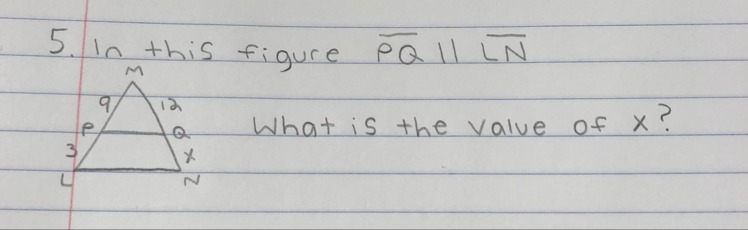 5. In this figure PQ || LN
M
9 12
P Q What is the value of x?
3 x
L N